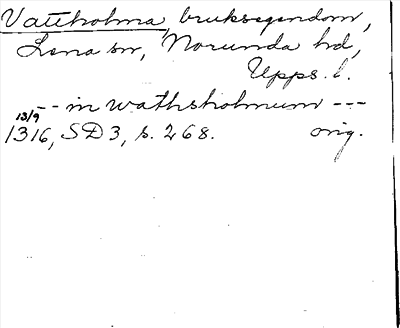 Vattholma, bruksegendom,
Lena sn, Norunda hd,
Upps. l.
-- in wathsholmum ---
13/9
1316, SD 3, s. 268. orig.